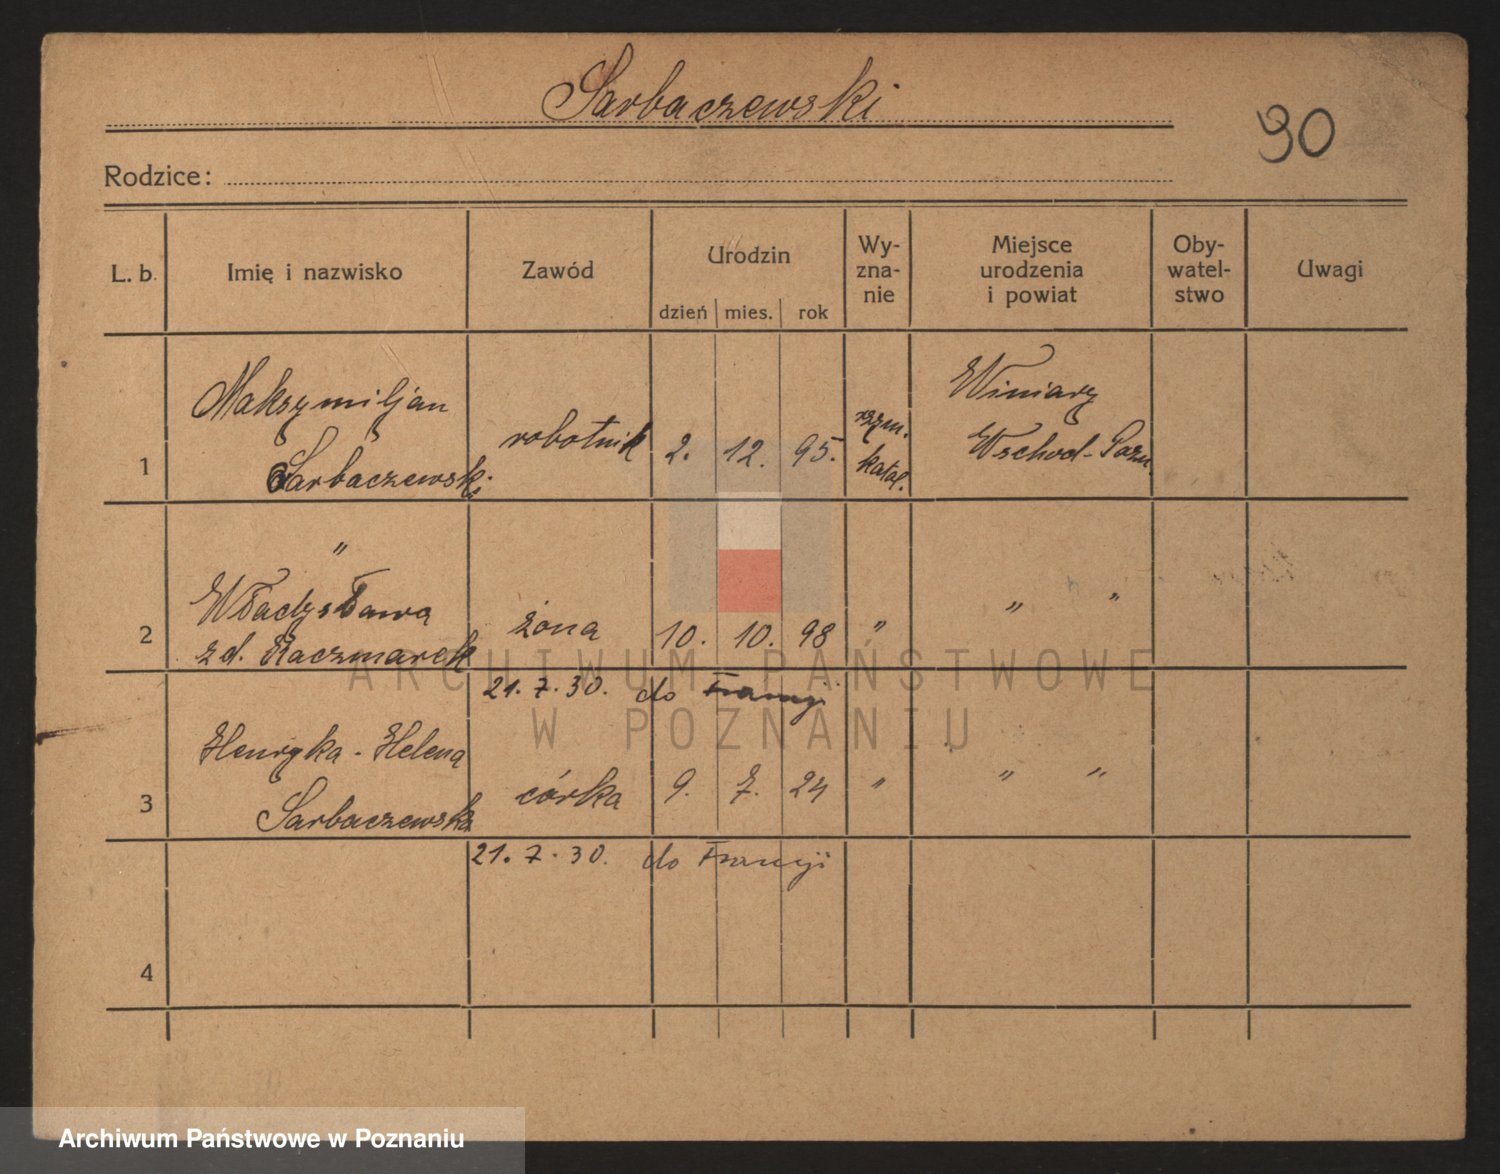 Sarbaczewski
90
Rodzice:
L. b. Imię i nazwisko Zawód Urodzin dzień mies. rok Wy-zna-nie Miejsce urodzenia i powiat Oby-watel-stwo Uwagi
Maksymiljan Winiary
rzym.
robotnik 2. 12. 95. Wschod-Pozn.
1 Sarbaczewski katol.
"
Władysława " "
2 żona 10. 10. 98 "
zd. Kaczmarek
ARCHIWUM PAŃSTWOWE
21. 7. 30. do Francji
W POZNANIU
Henryka - Helena
3 córka 9. 7. 24 " " "
Sarbaczewska
21. 7. 30. do Francji
4
Archiwum Państwowe w Poznaniu